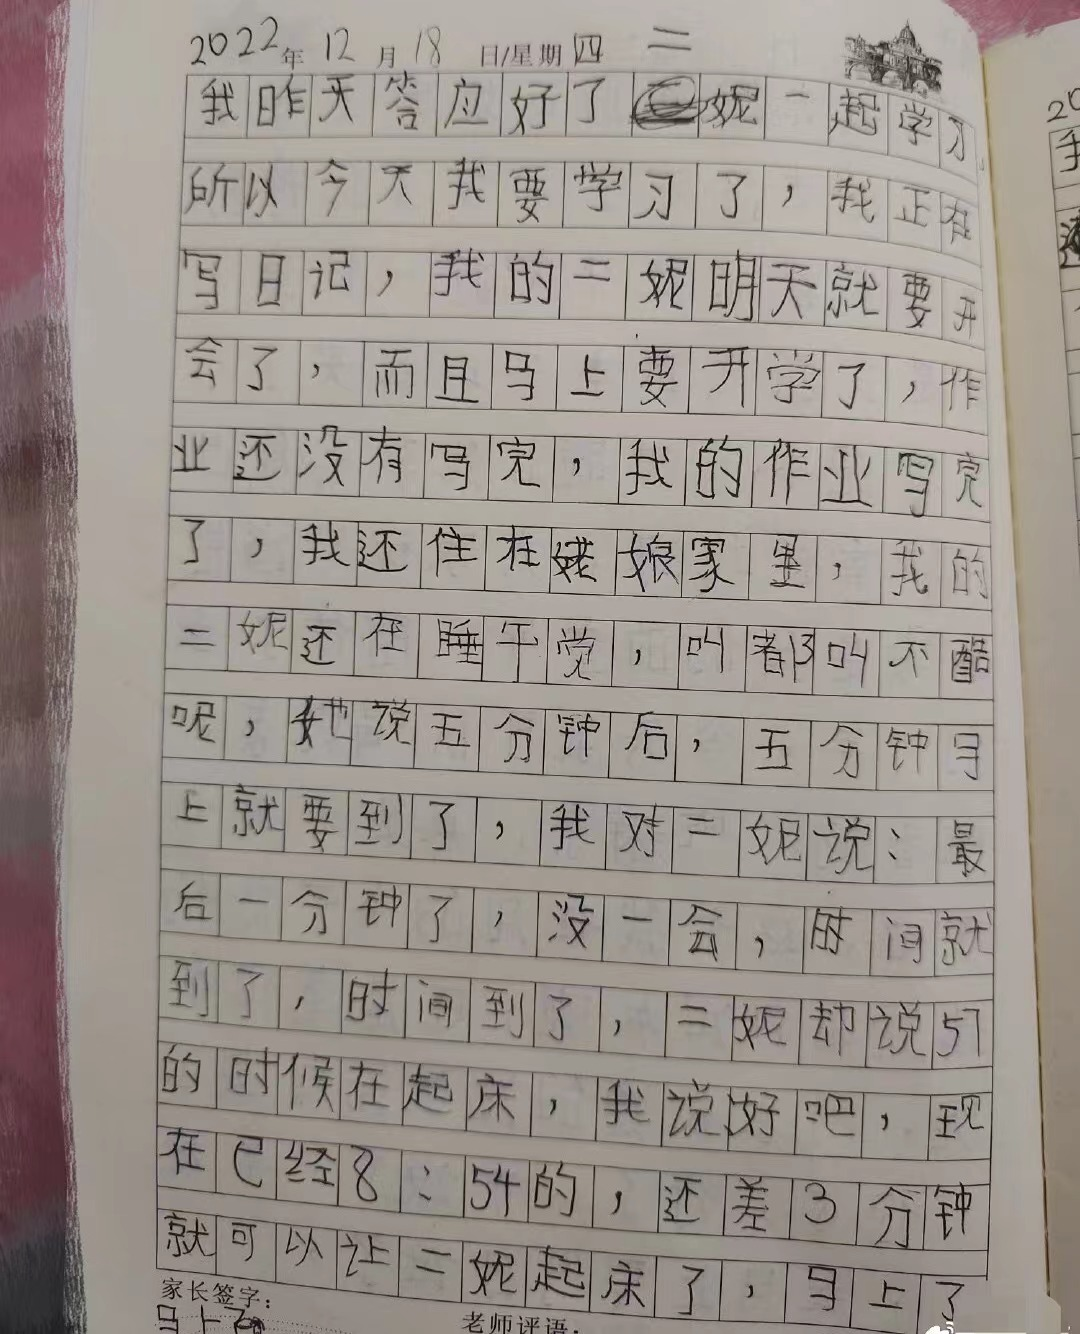 2022年 12月 18日/星期四 二
我昨天答应好了妮一起学习,
所以今天我要学习了，我正在
写日记，我的二妮明天就要开
会了，而且马上要开学了，作
业还没有写完，我的作业写完
了，我还住在姥娘家里，我的
二妮还在睡午觉，叫都叫不酷
呢，她说五分钟后，五分钟马
上就要到了，我对二妮说：最
后一分钟了，没一会，时间就
到了，时间到了，二妮却说57
的时候在起床，我说好吧，现
在已经8：54的，还差3分钟
就可以让二妮起床了，马上了
家长签字：
马上
老师评语：
20
我